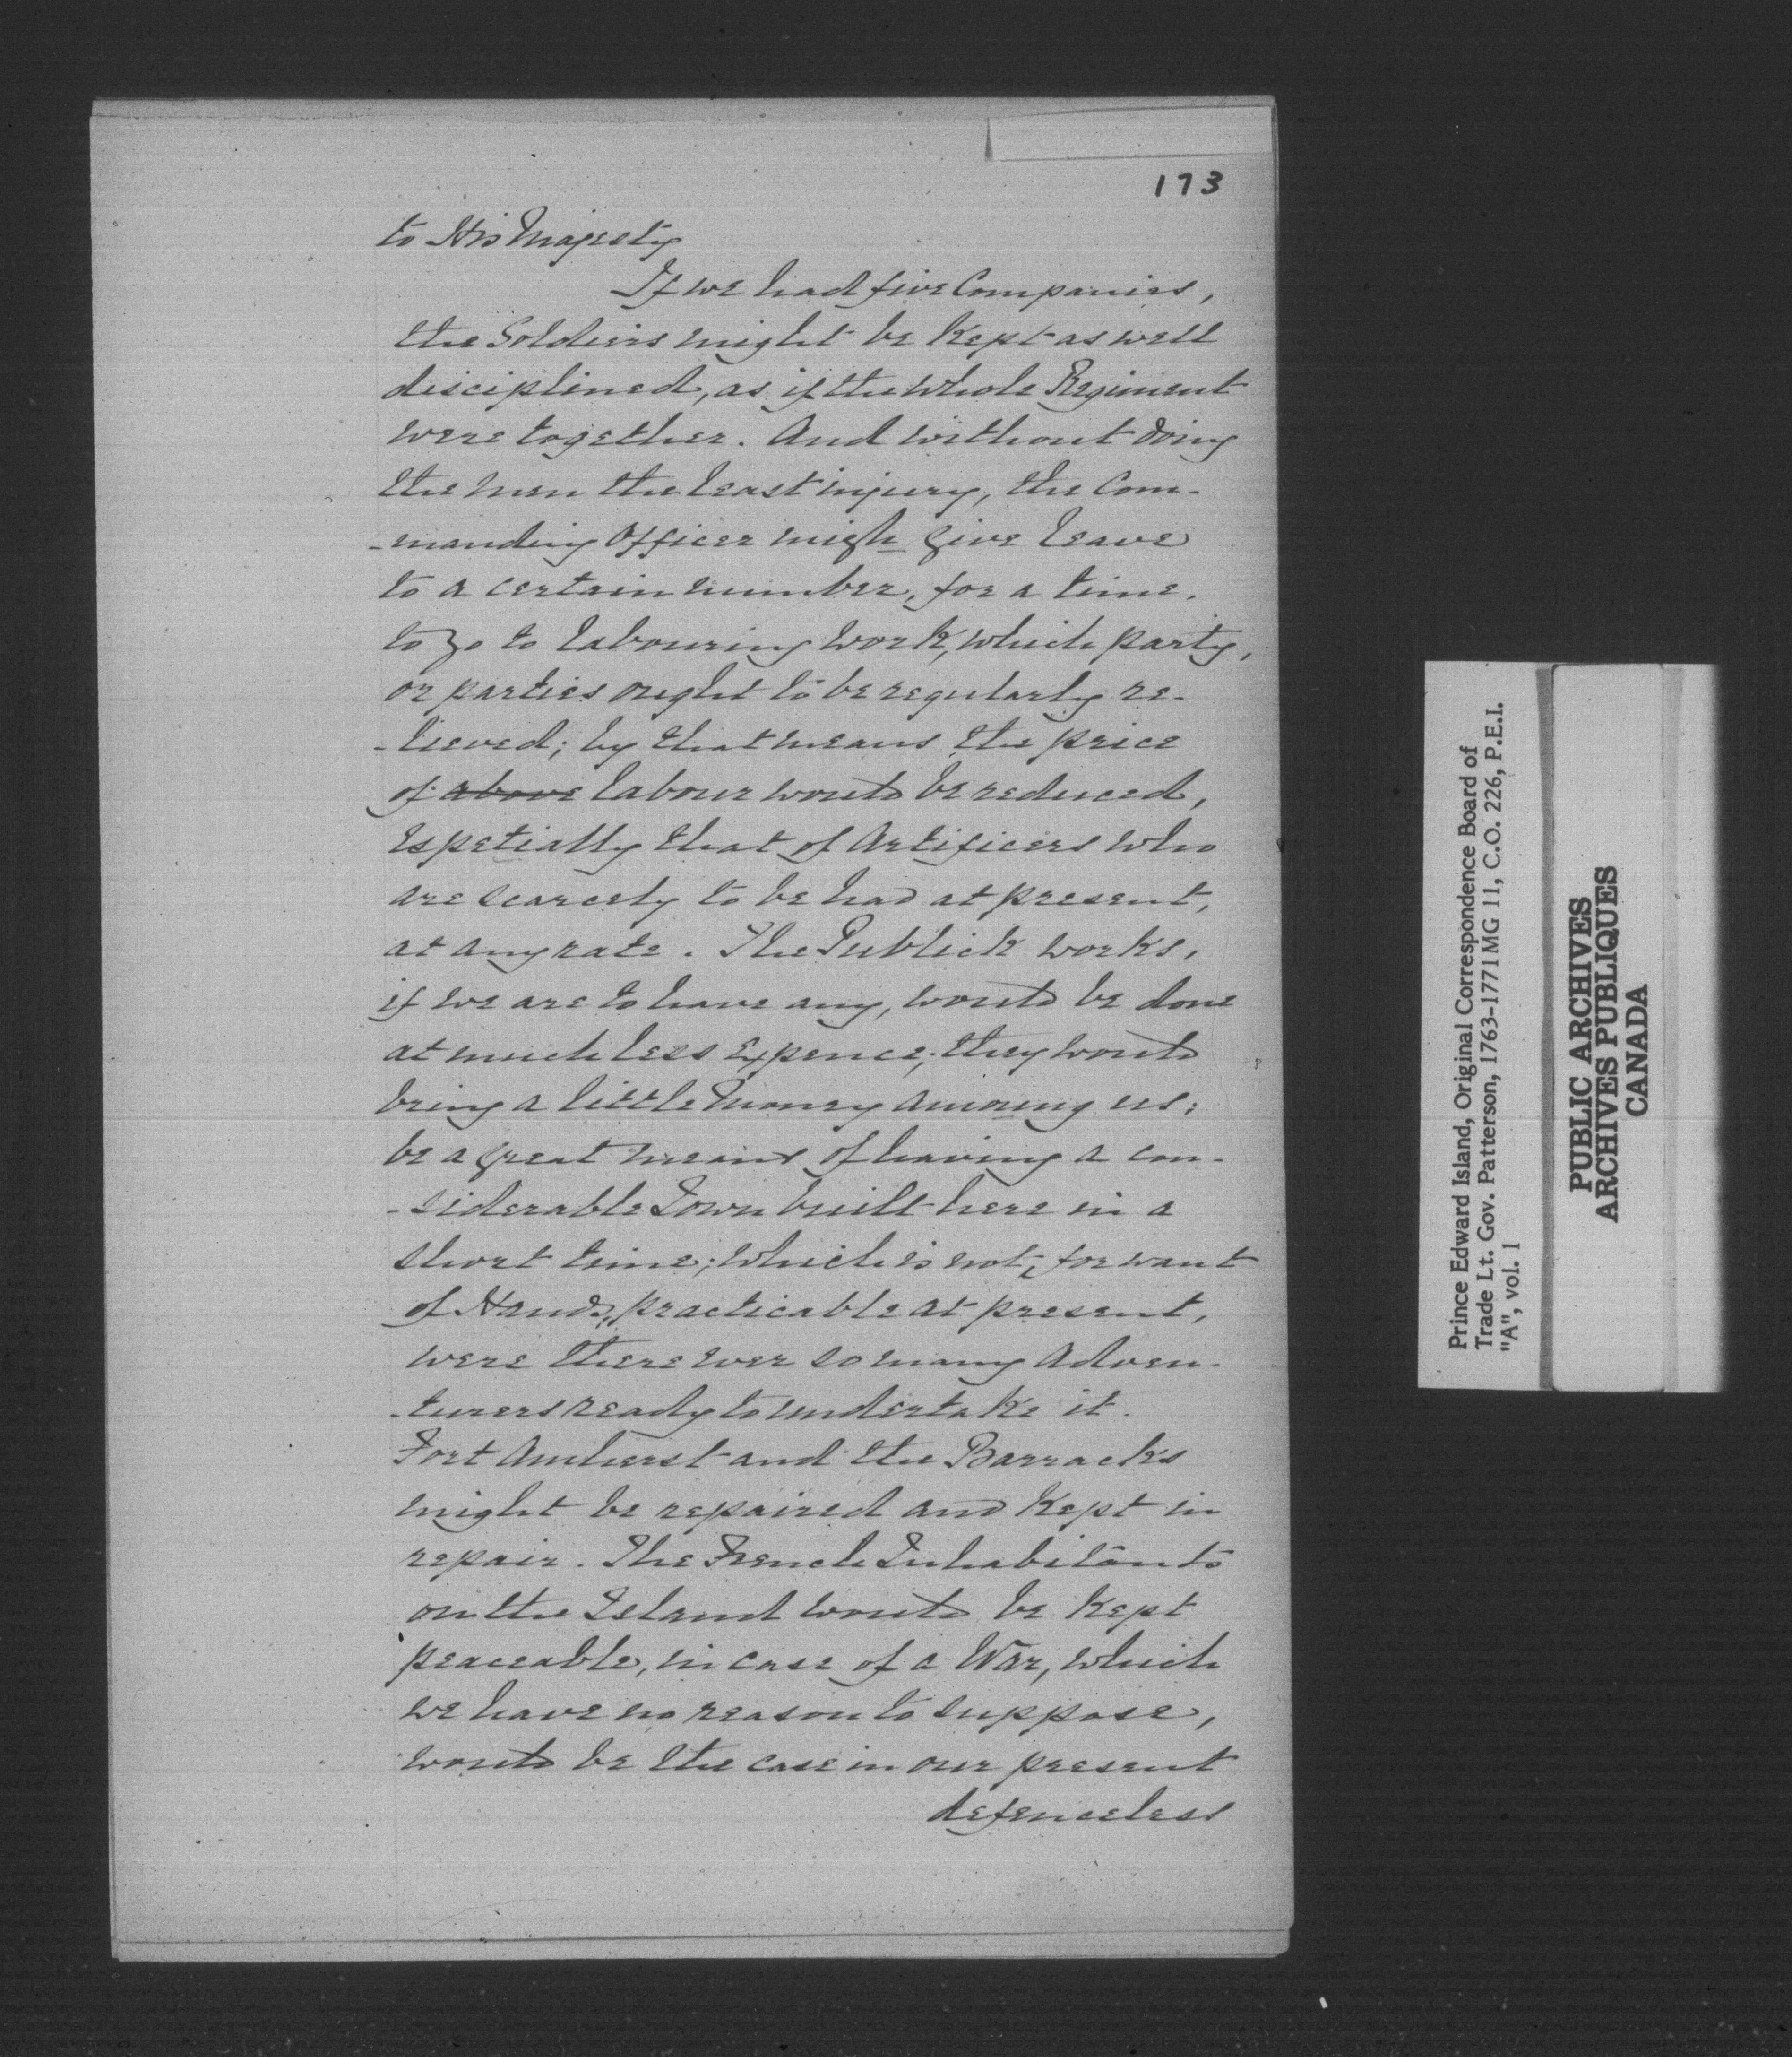 173
to His Majesty
If we had five Companies,
the Soldiers might be kept as well
disciplined, as if the whole Regiment
were together. And without doing
the men the least injury, the Com-
-manding Officer migh give leave
to a certain number, for a time,
to go to labouring work, which party,
or parties ought to be regularly re-
-lieved; by that means the price
of above labour would be reduced,
Espetially that of Artificers who
are scarcely to be had at present,
at any rate. The Publick works,
if we are to have any, would be done
at much less Expence; they would
bring a little money amoung us;
be a great means of having a con-
-siderable Town built here in a
short time; which is not, for want
of Hands, practicable at present,
were there ever so many adven-
-turers ready to undertake it.
Fort Amherst and the Barracks
might be repaired and kept in
repair. The French Inhabitants
on the Island would be kept
peaceable, in case of a War, which
we have no reason to suppose,
would be the case in our present
defenceless
Prince Edward Island, Original Correspondence Board of
Trade Lt. Gov. Patterson, 1763-1771MG 11, C.O. 226, P.E.I.
"A", vol. 1
PUBLIC ARCHIVES
ARCHIVES PUBLIQUES
CANADA